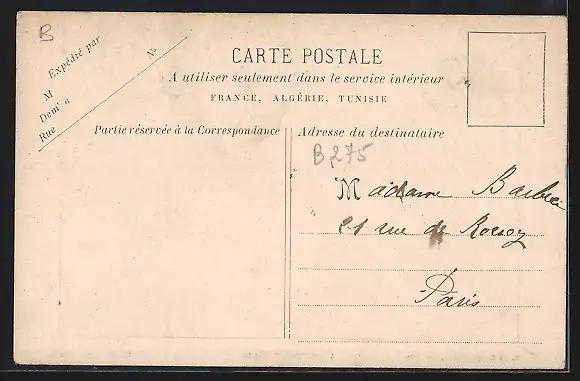 B
Expédié par
M
Demt à
Rue No
CARTE POSTALE
A utiliser seulement dans le service intérieur
FRANCE, ALGÉRIE, TUNISIE
Partie réservée à la Correspondance
Adresse du destinataire
B,275
Madame
21 rue de
Paris